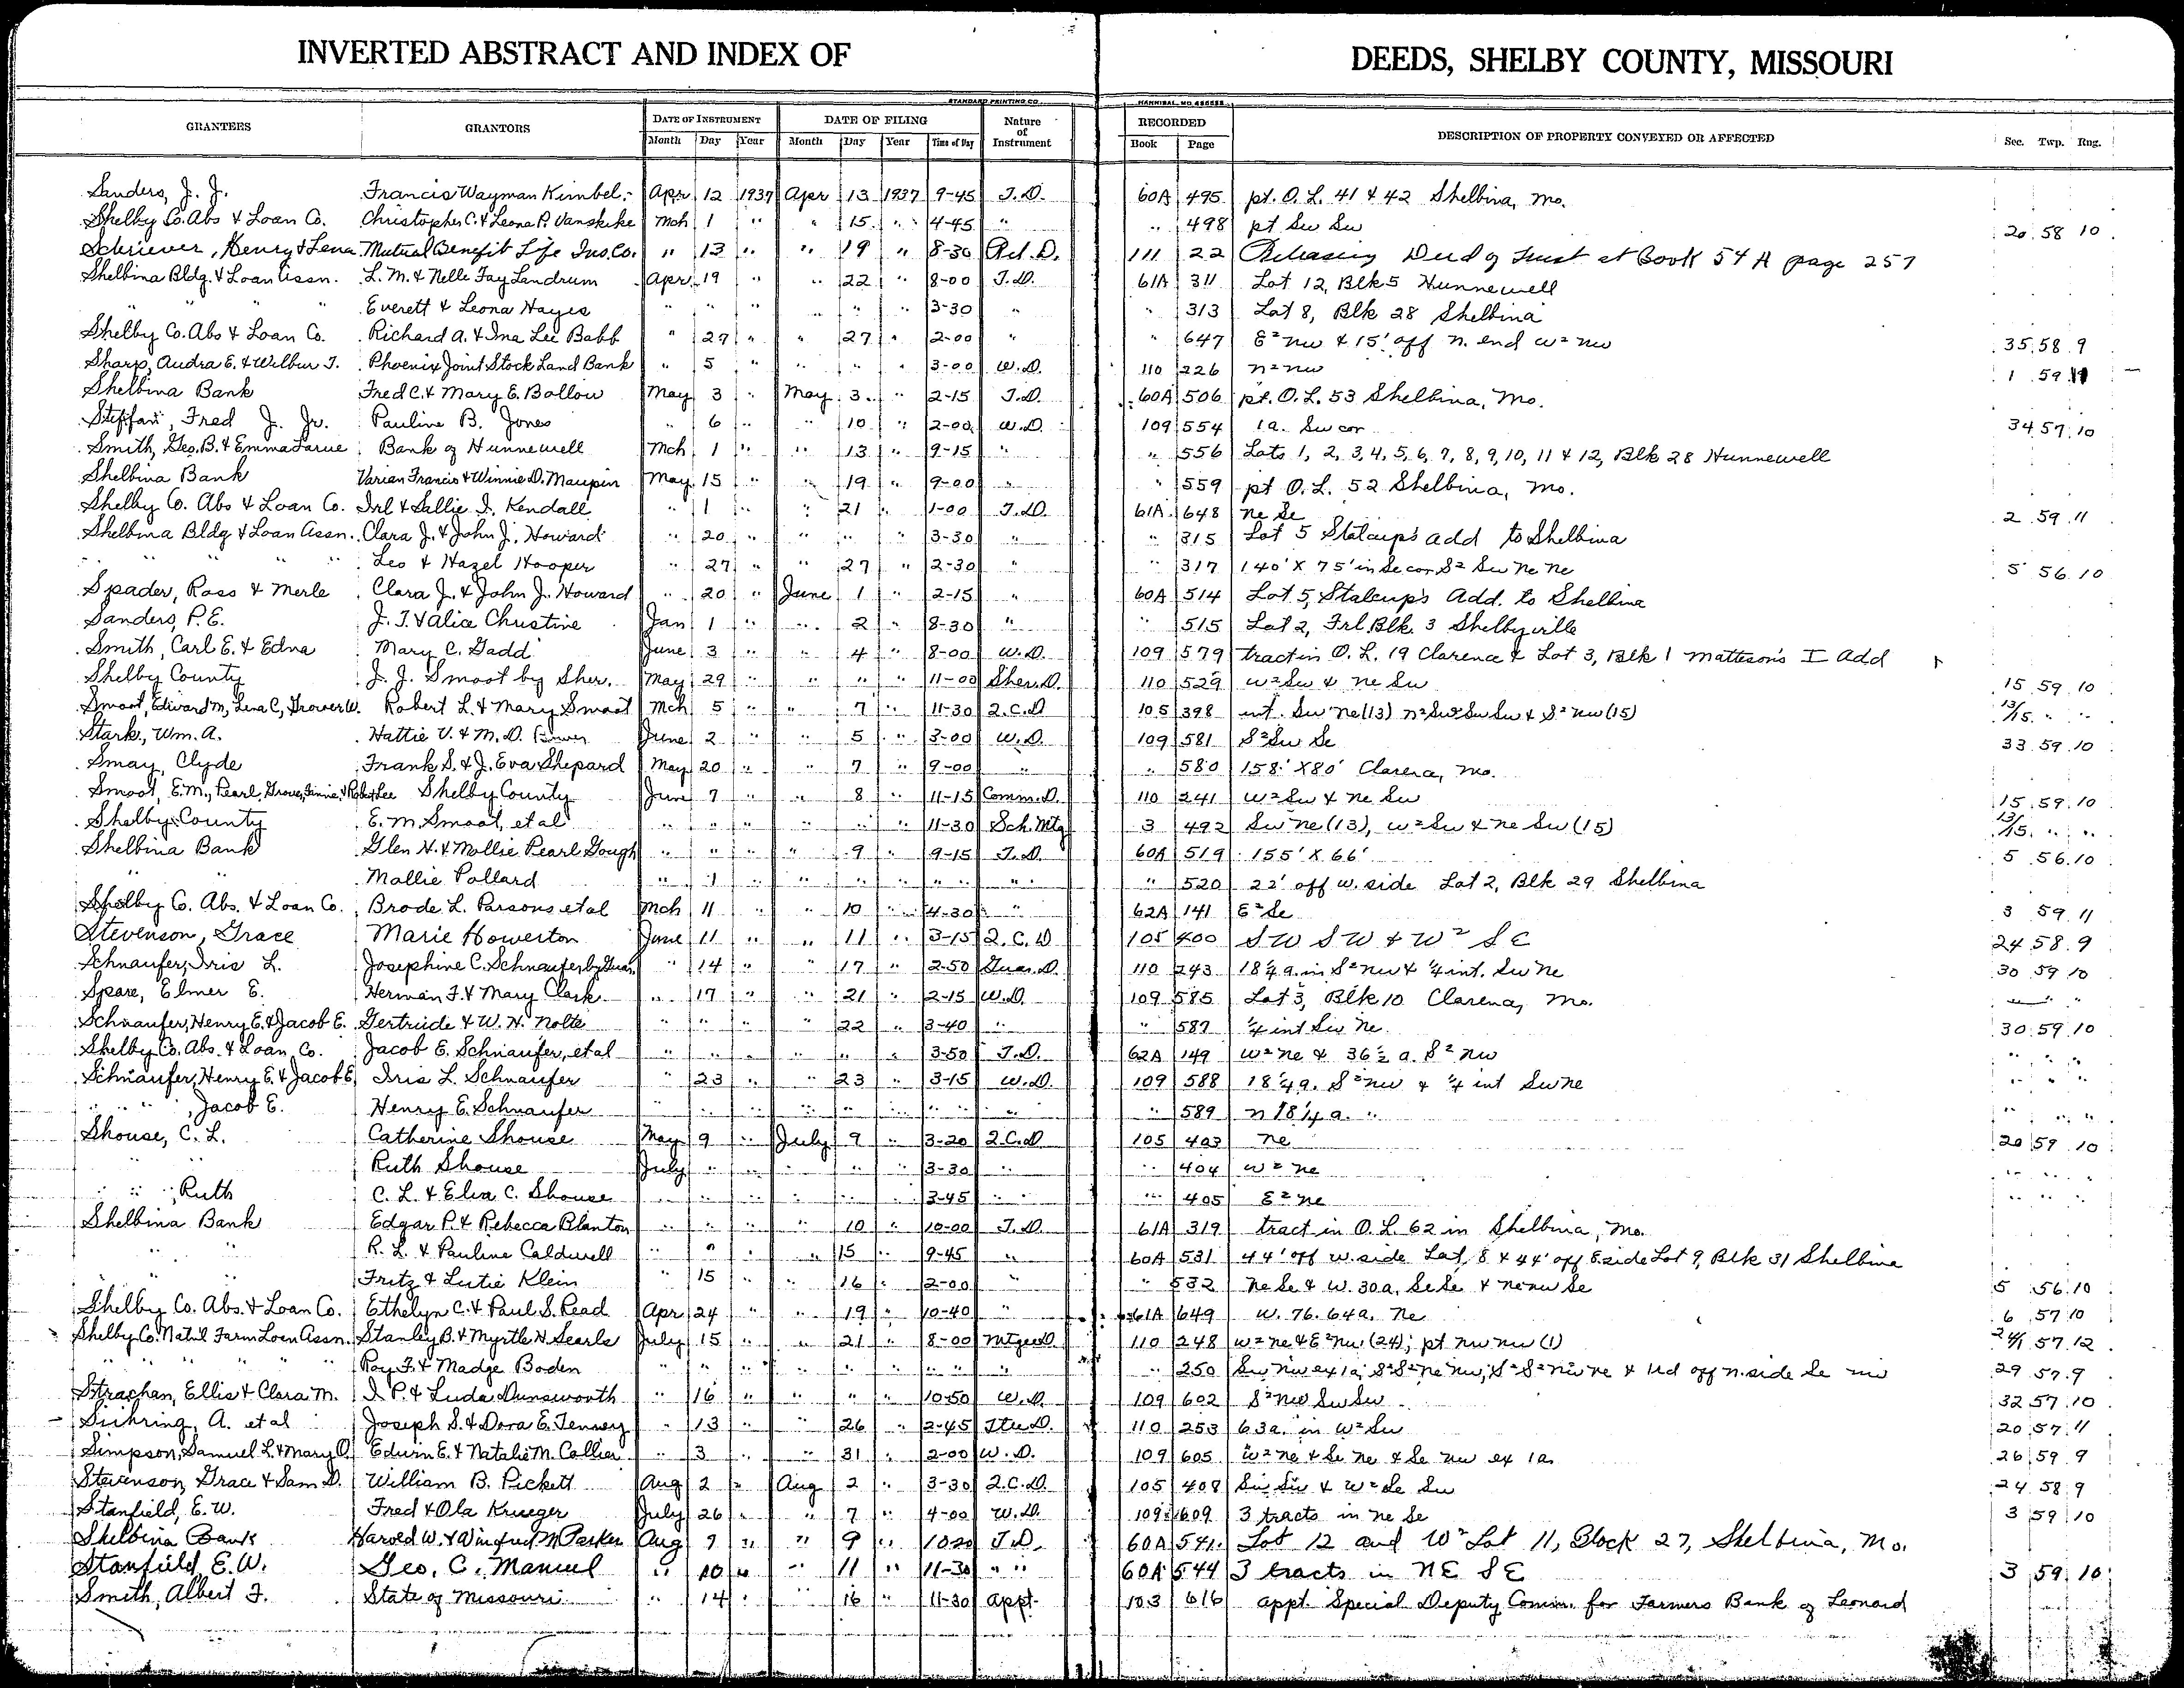 INVERTED ABSTRACT AND INDEX OF DEEDS, SHELBY COUNTY, MISSOURI
STANDARD PRINTING CO. HANNIBAL, MO.
GRANTEES GRANTORS DATE OF INSTRUMENT DATE OF FILING Nature of Instrument RECORDED DESCRIPTION OF PROPERTY CONVEYED OR AFFECTED Sec. Twp. Rng.
Month Day Year Month Day Year Time of Day Book Page
Sanders, J. J. Francis Wayman Kimbel Apr 12 1937 Apr 13 1937 9-45 T.D. 60A 495 pt. O.L. 41 & 42 Shelbina, Mo.
Shelby Co. Abs & Loan Co. Christopher C. & Leona P. Vanskike Mch 1 " " 15 " 4-45 " " 498 pt Sw Sw 20 58 10
Schriever, Henry & Lena Mutual Benefit Life Ins. Co. " 13 " " 19 " 8-30 Rel. D. 111 22 Releasing Deed of Trust at Book 54 A page 257
Shelbina Bldg. & Loan Assn. L. M. & Nelle Fay Landrum Apr 19 " " 22 " 8-00 T.D. 61A 311 Lot 12, Blk 5 Hunnewell
" " " Everett & Leona Hayes " " " " " " 3-30 " " 313 Lot 8, Blk 28 Shelbina
Shelby Co. Abs & Loan Co. Richard A. & Ina Lee Babb " 27 " " 27 " 2-00 " " 647 E² nw & 15' off n. end w² nw 35 58 9
Sharp, Audra E. & Wilbur T. Phoenix Joint Stock Land Bank " 5 " " " " 3-00 W.D. 110 226 n² nw 1 59 11
Shelbina Bank Fred C. & Mary E. Bollow May 3 " May 3 " 2-15 T.D. 60A 506 pt. O.L. 53 Shelbina, Mo.
Fred J. Jr. Pauline B. Jones " 6 " " 10 " 2-00 W.D. 109 554 1a. Sw cor 34 57 10
Smith, Geo. B. & Emma Larue Bank of Hunnewell Mch 1 " " 13 " 9-15 " " 556 Lots 1, 2, 3, 4, 5, 6, 7, 8, 9, 10, 11 & 12, Blk 28 Hunnewell
Shelbina Bank Varian Francis & Winnie D. Maupin May 15 " " 19 " 9-00 " " 559 pt O.L. 52 Shelbina, Mo.
Shelby Co. Abs & Loan Co. Irl & Sallie I. Kendall " 1 " " 21 " 1-00 T.D. 61A 648 ne Se 2 59 11
Shelbina Bldg & Loan Assn. Clara J. & John J. Howard " 20 " " " " 3-30 " " 315 Lot 5 Stalcup's add to Shelbina
" " " " Leo & Hazel Hooper " 27 " " 27 " 2-30 " " 317 140' X 75' in Se cor S² Sw ne ne 5 56 10
Spader, Ross & Merle Clara J. & John J. Howard " 20 " June 1 " 2-15 " 60A 514 Lot 5, Stalcup's Add. to Shelbina
Sanders, P.E. J. T. & Alice Christine Jan 1 " " 2 " 8-30 " " 515 Lot 2, Frl. Blk. 3 Shelbyville
Smith, Carl E. & Edna Mary C. Gadd June 3 " " 4 " 8-00 W.D. 109 579 tract in O.L. 19 Clarence & Lot 3, Blk 1 Matteson's I Add
Shelby County J. J. Smoot by Sher. May 29 " " " " 11-00 Sher. D. 110 529 w² Sw & ne Sw 15 59 10
Smoot, Edward M, Lena C, Grover W. Robert L. & Mary Smoot Mch 5 " " 7 " 11-30 Q.C.D 105 398 int. Sw ne (13) n² Sw Sw Sw & S² nw (15) 13/15 " "
Stark, Wm. A. Hattie V. & M. D. June 2 " " 5 " 3-00 W.D. 109 581 S² Sw Se 33 59 10
Smay, Clyde Frank S. & J. Eva Shepard May 20 " " 7 " 9-00 " " 580 158' X 80' Clarence, Mo.
Smoot, E.M., Pearl, Grover, Jimmie, & Robert Lee Shelby County June 7 " " 8 " 11-15 Comm. D. 110 241 w² Sw & ne Sw 15 59 10
Shelby County E. M. Smoot, et al " " " " " " 11-30 Sch. Mtg 3 492 Sw ne (13), w² Sw & ne Sw (15) 13/15 " "
Shelbina Bank Glen H. & Mollie Pearl Gough " " " " 9 " 9-15 T.D. 60A 519 155' X 66' 5 56 10
" " Mollie Pollard " 1 " " " " " " " 520 22' off w. side Lot 2, Blk 29 Shelbina
Shelby Co. Abs. & Loan Co. Brode L. Parsons et al Mch 11 " " 10 " 4-30 " 62A 141 E² Se 3 59 11
Stevenson, Grace Marie Howerton June 11 " " 11 " 3-15 Q.C.D 105 400 SW SW & W² SE 24 58 9
Schnaufer, Iris L. Josephine C. Schnaufer by Guar. " 14 " " 17 " 2-50 Guar. D. 110 243 18¼ a. in S² nw & ¼ int. Sw ne 30 59 10
Spare, Elmer E. Herman F. & Mary Clark " 17 " " 21 " 2-15 W.D. 109 585 Lot 3, Blk 10 Clarence, Mo.
Schnaufer, Henry E. & Jacob E. Gertrude & W. H. Nolte " " " " 22 " 3-40 " " 587 ¼ int Sw ne. 30 59 10
Shelby Co. Abs. & Loan Co. Jacob E. Schnaufer, et al " " " " " " 3-50 T.D. 62A 149 w² ne & 36½ a. S² nw " " "
Schnaufer, Henry E. & Jacob E. Iris L. Schnaufer " 23 " " 23 " 3-15 W.D. 109 588 18¼ a. S² nw & ¼ int Sw ne " " "
" " , Jacob E. Henry E. Schnaufer " " " " " " " " " 589 n 18¼ a. " " " "
Shouse, C. L. Catherine Shouse May 9 " July 9 " 3-20 Q.C.D 105 403 ne 20 59 10
Ruth Shouse July " " " " " 3-30 " " 404 w² ne " " "
" " , Ruth C. L. & Elva C. Shouse " " " " " " 3-45 " " 405 E² ne " " "
Shelbina Bank Edgar P. & Rebecca Blanton " " " " 10 " 10-00 T.D. 61A 319 tract in O.L. 62 in Shelbina, Mo.
" " R. L. & Pauline Caldwell " " " " 15 " 9-45 " 60A 531 44' off w. side Lot 8 & 44' off E. side Lot 9, Blk 31 Shelbina
" " Fritz & Lutie Klein " 15 " " 16 " 2-00 " " 532 ne Se & W. 30a. Se Se & ne nw Se 5 56 10
Shelby Co. Abs. & Loan Co. Ethelyn C. & Paul S. Read Apr 24 " " 19 " 10-40 " 61A 649 w. 76.64a. ne 6 57 10
Shelby Co. Nat'l Farm Loan Assn. Stanley B. & Myrtle H. Searls July 15 " " 21 " 8-00 Mtge D. 110 248 w² ne & E² nw (24); pt nw nw (1) 24/1 57 12
" " " " Roy F. & Madge Boden " " " " " " " " " 250 Sw nw ex 1a; S² S² ne nw; S² S² nw ne & off n. side Se nw 29 57 9
Strachan, Ellis & Clara M. I. P. & Luda Dunsworth " 16 " " " " 10-50 W.D. 109 602 S² nw Sw Sw 32 57 10
Suhring, A. et al Joseph S. & Dora E. Tenney " 13 " " 26 " 2-45 Tte. D. 110 253 63a. in w² Sw 20 57 11
Simpson, Samuel L. & Mary O. Edwin E. & Natalie M. Collier " 3 " " 31 " 2-00 W.D. 109 605 w² ne & Se ne & Se nw ex 1a 26 59 9
Stevenson, Grace & Sam D. William B. Pickett Aug 2 " Aug 2 " 3-30 Q.C.D. 105 408 Sw Sw & w² Se Sw 24 58 9
Stanfield, E.W. Fred & Ola Krueger July 26 " " 7 " 4-00 W.D. 109 609 3 tracts in ne Se 3 59 10
Shelbina Bank Harold W. & Winifred M Parker Aug 7 " " 9 " 10-20 T.D. 60A 541 Lot 12 and W² Lot 11, Block 27, Shelbina, Mo.
Stanfield, E.W. Geo. C. Manuel " 10 " " 11 " 11-30 " " 60A 544 3 tracts in NE SE 3 59 10
Smith, Albert F. State of Missouri " 14 " " 16 " 11-30 Appt. 103 616 appt. Special Deputy Comm. for Farmers Bank of Leonard